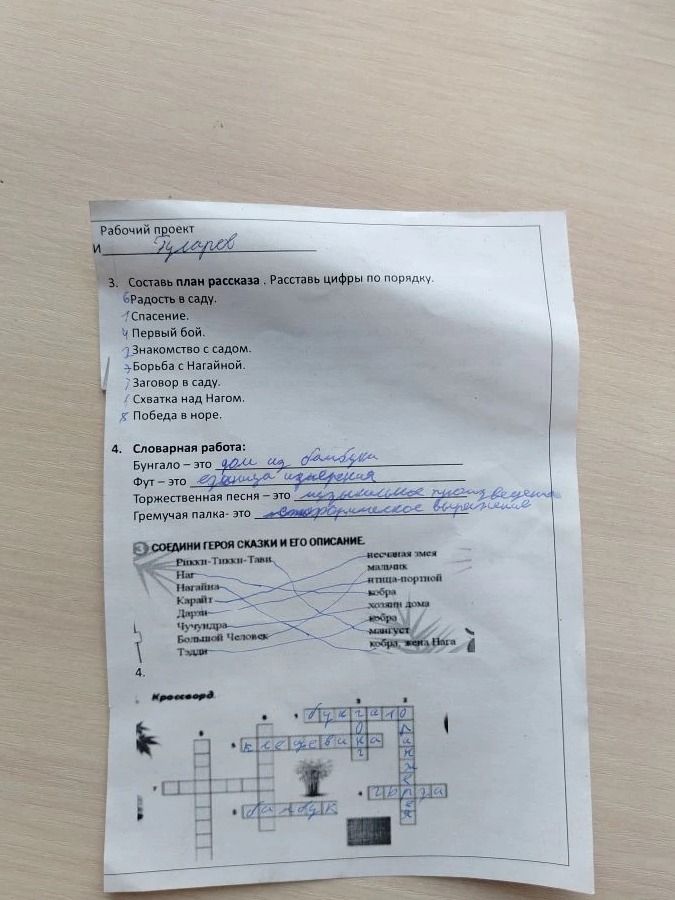 Рабочий проект
И Гуларов
3. Составь план рассказа . Расставь цифры по порядку.
6 Радость в саду.
1 Спасение.
4 Первый бой.
2 Знакомство с садом.
Борьба с Нагайной.
Заговор в саду.
Схватка над Нагом.
8 Победа в норе.
4. Словарная работа:
Бунгало – это дом из бамбука
Фут – это единица измерения
Торжественная песня – это музыкальное произведение
Гремучая палка- это выражение
3 СОЕДИНИ ГЕРОЯ СКАЗКИ И ЕГО ОПИСАНИЕ.
Рикки-Тикки-Тави
Наг
Нагайна
Карайт
Дарзи
Чучундра
Большой Человек
Тэдди
песчаная змея
мальчик
птица-портной
кобра
хозяин дома
кобра
мангуст
кобра, жена Нага
4.
Кроссворд.
бунгало
клещевина
бамбук